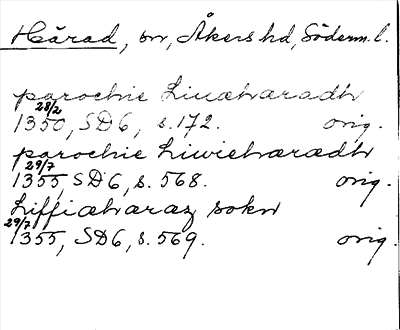 Härad, sn, Åkers hd, Söderm. l.
parochie Liuæharadh
28/2
1350, SD6, s. 172. orig.
parochie Liwiehærædh
29/7
1355, SD6, s. 568. orig.
Liffiæharaz sokn
29/7
1355, SD6, s. 569. orig.